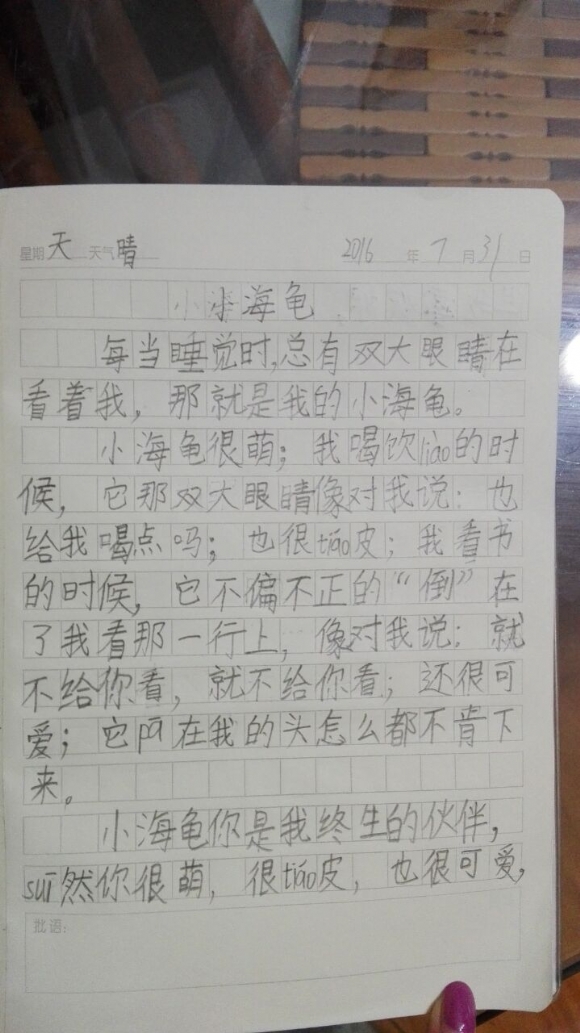 星期天 天气晴 2016年7月31日
小海龟
每当睡觉时,总有双大眼睛在
看着我，那就是我的小海龟。
小海龟很萌；我喝饮liào的时
候，它那双大眼睛像对我说：也
给我喝点吗；也很tiáo皮；我看书
的时候，它不偏不正的“倒”在
了我看那一行上，像对我说：就
不给你看，就不给你看；还很可
爱；它pā在我的头怎么都不肯下
来。
小海龟你是我终生的伙伴，
suī然你很萌，很tiáo皮，也很可爱，
批语：